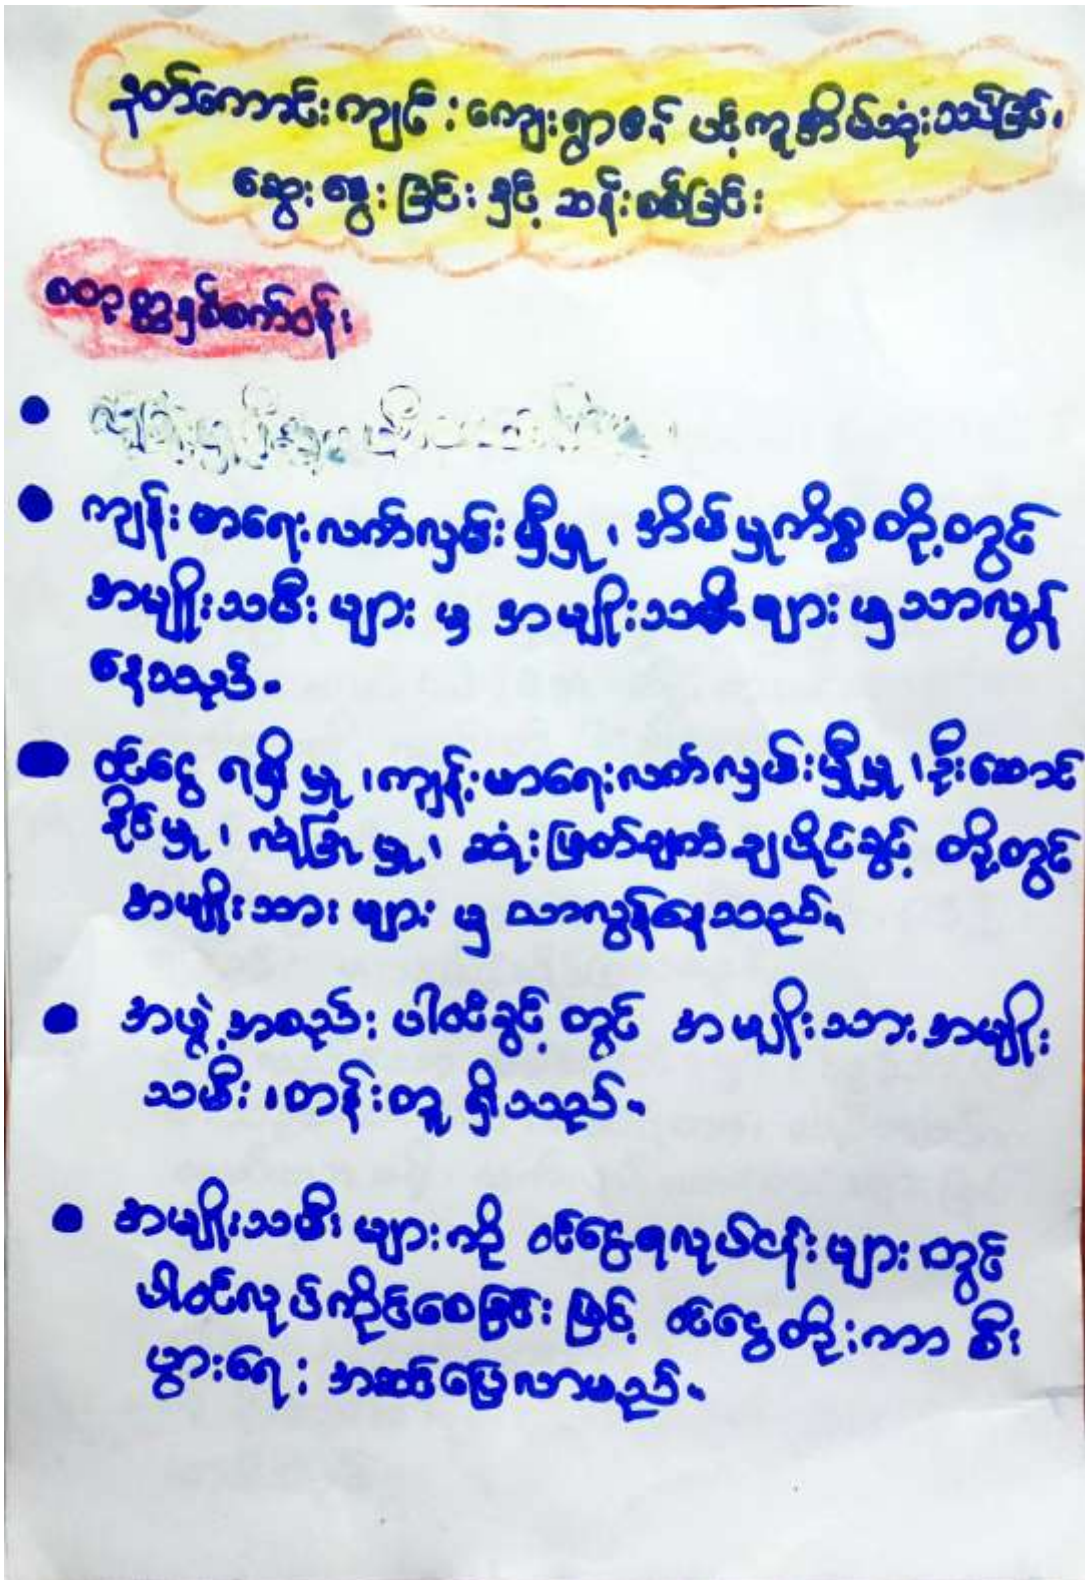 နတ်ကောင်းကျင်း ကျေးရွာ၏
ဆွေးနွေးခြင်း နှင့် ဆန်းစစ်ခြင်း
စတုတ္ထနှစ်စက်ဝန်း
ကျန်းမာရေးလက်လှမ်းမှီမှု ၊ အိမ်မှုကိစ္စ တို့တွင်
အမျိုးသမီး များ မှ အမျိုးသမီးများ မှ သာလွန်
နေသည်။
ဝင်ငွေ ရရှိမှု ၊ကျန်းမာရေးလက်လှမ်းမှီမှု ၊ဦးဆောင်
နိုင်မှု ၊ လုံခြုံမှု ၊ ဆုံးဖြတ်ချက်ချပိုင်ခွင့် တို့တွင်
အမျိုးသား များ မှ သာလွန်နေသည်။
အဖွဲ့အစည်း ပါဝင်ခွင့် တွင် အမျိုးသား၊အမျိုး
သမီး ၊တန်းတူ ရှိသည်။
အမျိုးသမီး များကို ဝင်ငွေရလုပ်ငန်း များ တွင်
ပါဝင်လုပ်ကိုင်စေခြင်း ဖြင့် ဝင်ငွေတိုးကာ စီး
ပွားရေး အဆင်ပြေလာမည်။